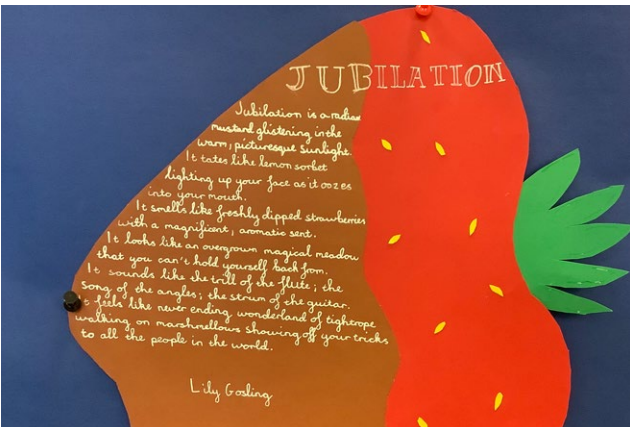 JUBILATION
Jubilation is a radian
mustard glistening in the
warm, picturesque sunlight.
It tates like lemon sorbet
lighting up your face as it oozes
into your mouth.
It smells like freshly dipped strawberries
with a magnificent, aromatic sent.
It looks like an overgrown magical meadow
that you can't hold yourself back from.
It sounds like the trill of the flute; the
song of the angles; the strum of the guitar.
It feels like never ending wonderland of tighrope
walking on marshmellows showing off your tricks
to all the people in the world.
Lily Gosling